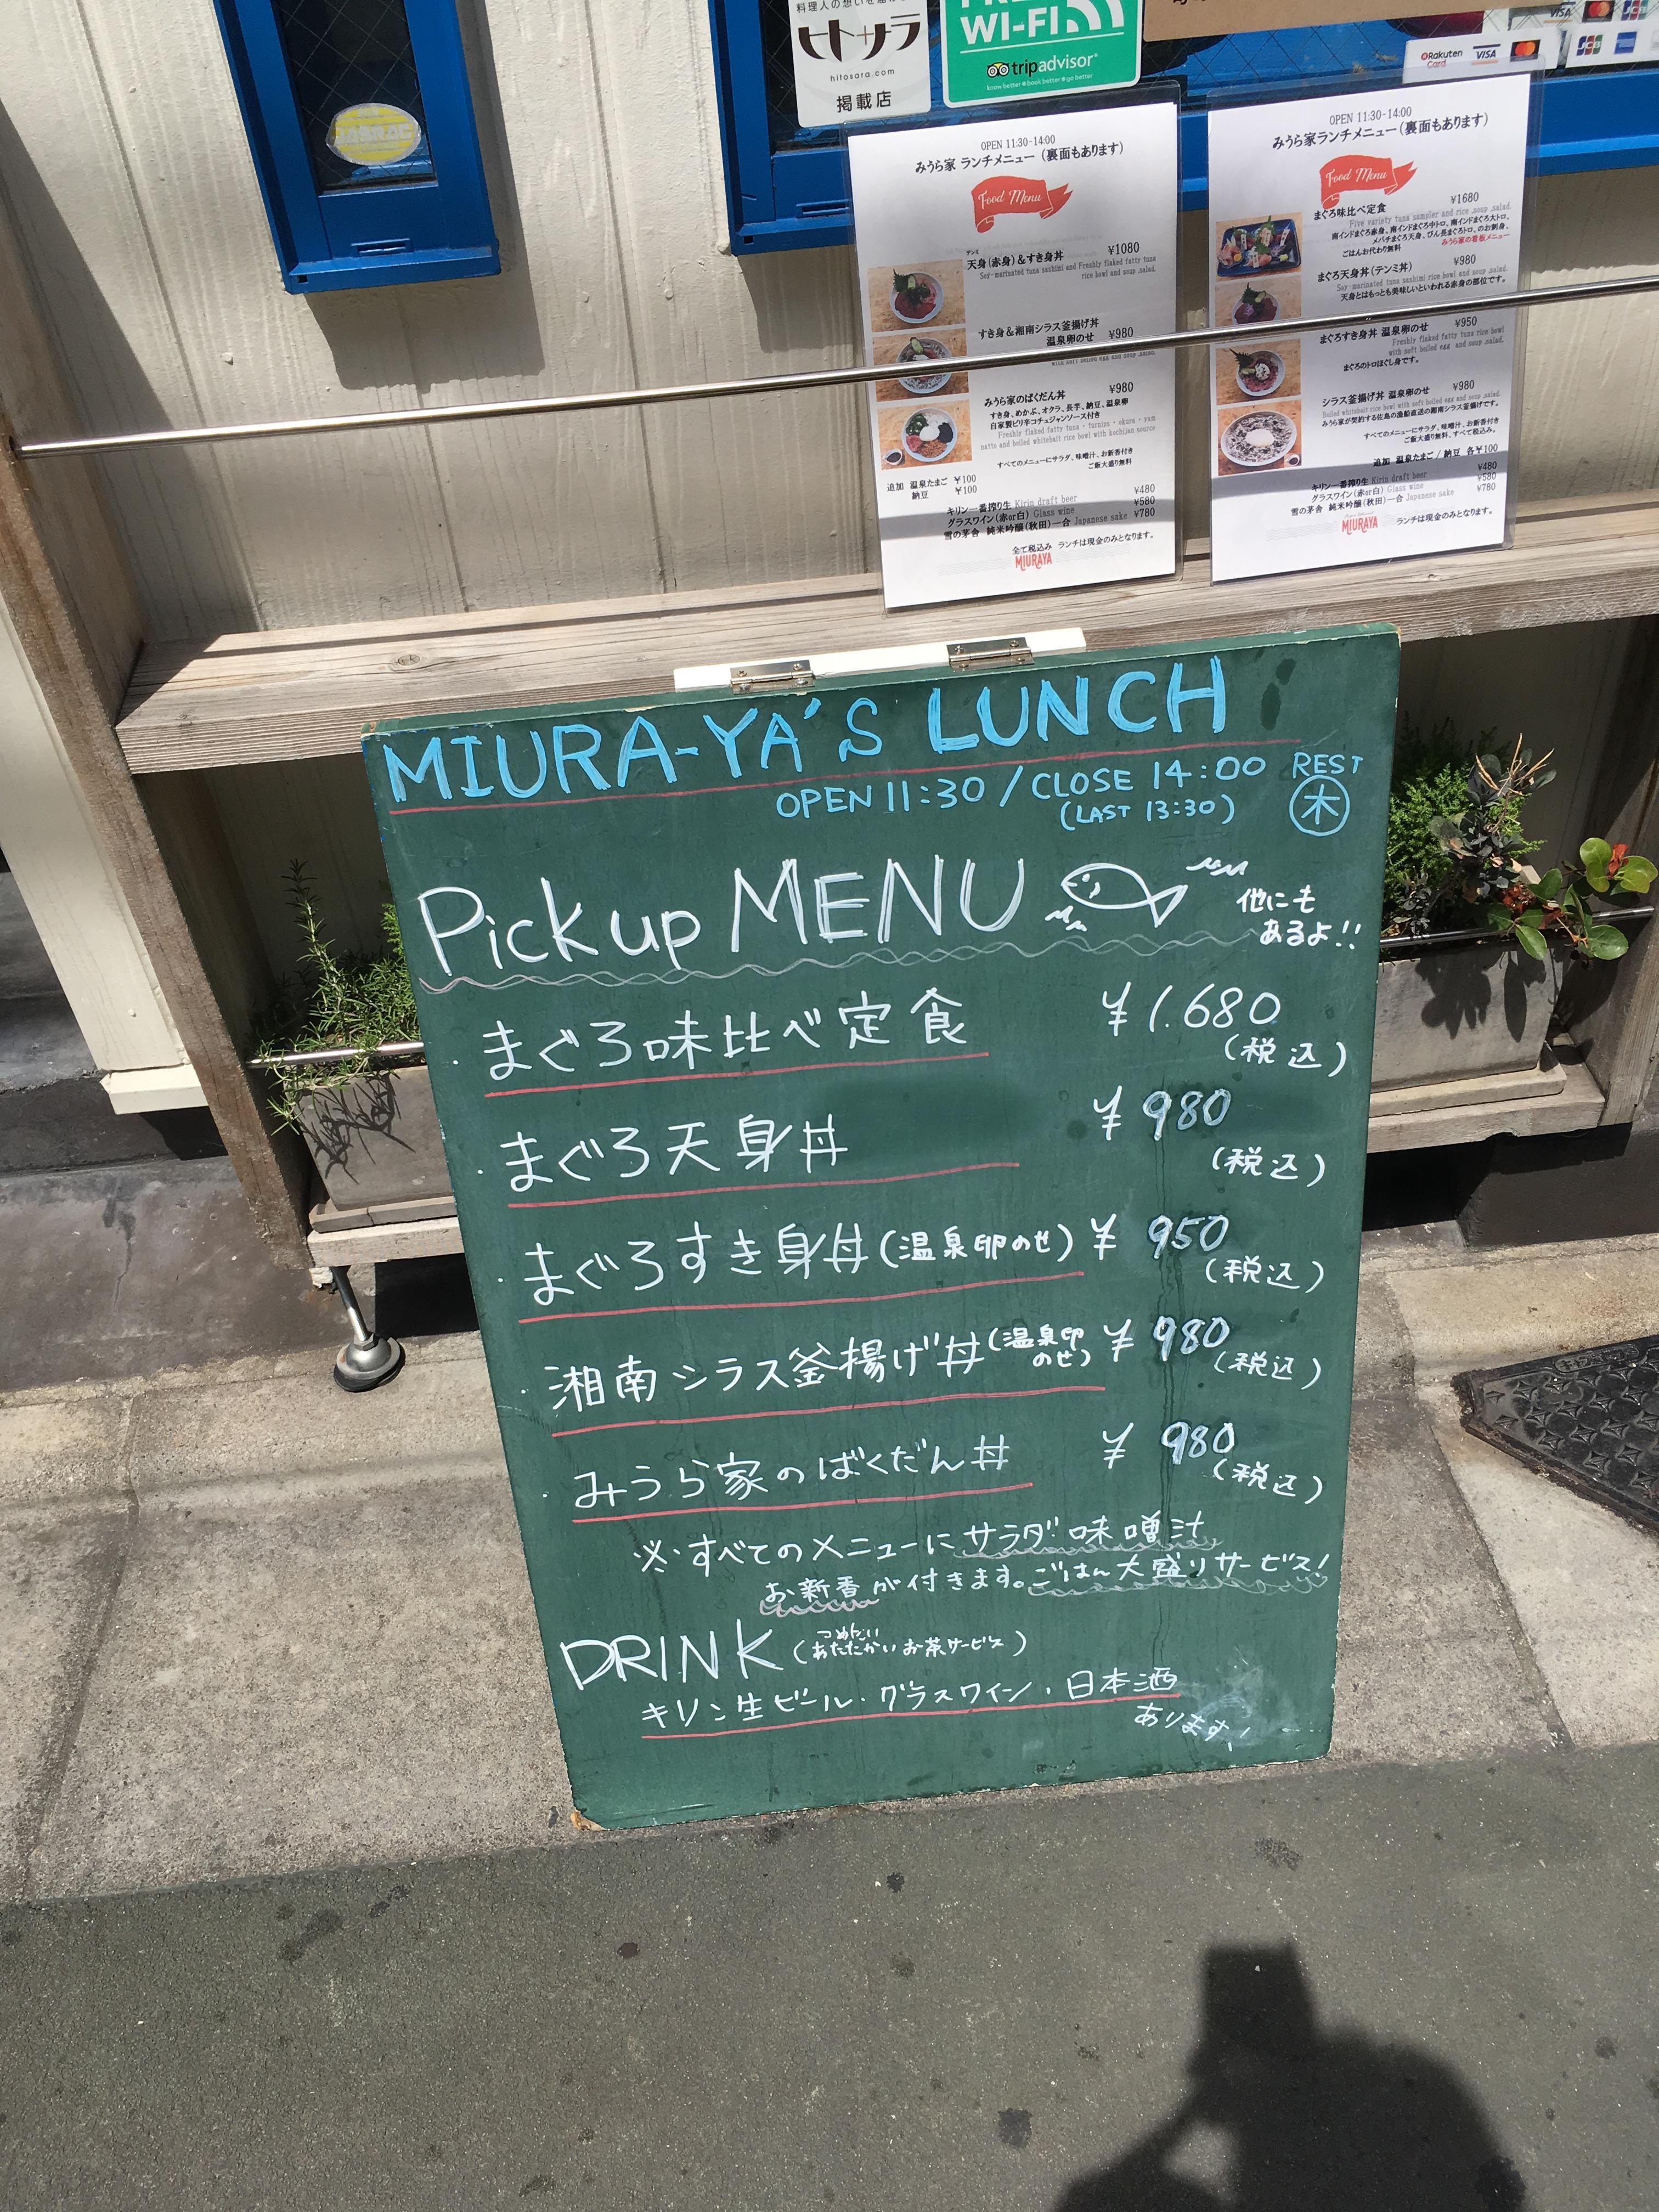 ヒトサラ
hitosara.com
掲載店
WI-FI
tripadvisor
know better • book better • go better
Rakuten Card
VISA
JCB
OPEN 11:30-14:00
みうら家 ランチメニュー (裏面もあります)
Food Menu
テンミ
天身(赤身)&すき身丼 ¥1080
Soy-marinated tuna sashimi and Freshly flaked fatty tuna
rice bowl and soup ,salad.
すき身&湘南シラス釜揚げ丼
温泉卵のせ ¥980
with soft boiled egg and soup ,salad.
みうら家のばくだん丼 ¥980
すき身、めかぶ、オクラ、長芋、納豆、温泉卵
自家製ピリ辛コチュジャンソース付き
Freshly flaked fatty tuna・turnips・okura・yam
natto and boiled whitebait rice bowl with kochijan source
すべてのメニューにサラダ、味噌汁、お新香付き
ご飯大盛り無料
追加 温泉たまご ¥100
納豆 ¥100
キリン一番搾り生 Kirin draft beer ¥480
グラスワイン(赤or白) Glass wine ¥580
雪の茅舎 純米吟醸(秋田)一合 Japanese sake ¥780
全て税込み ランチは現金のみとなります。
MIURAYA
OPEN 11:30-14:00
みうら家ランチメニュー(裏面もあります)
Food Menu
まぐろ味比べ定食 ¥1680
Five variety tuna sampler and rice ,soup ,salad.
南インドまぐろ赤身、南インドまぐろ中トロ、南インドまぐろ大トロ、
メバチまぐろ天身、びん長まぐろトロ、のお刺身、
ごはんお代わり無料 みうら家の看板メニュー
まぐろ天身丼(テンミ丼) ¥980
Soy-marinated tuna sashimi rice bowl and soup ,salad.
天身とはもっとも美味しいといわれる赤身の部位です。
まぐろすき身丼 温泉卵のせ ¥950
Freshly flaked fatty tuna rice bowl
with soft boiled egg and soup ,salad.
まぐろのトロほぐし身です。
シラス釜揚げ丼 温泉卵のせ ¥980
Boiled whitebait rice bowl with soft boiled egg and soup ,salad.
みうら家が契約する佐島の漁船直送の湘南シラス釜揚げです。
すべてのメニューにサラダ、味噌汁、お新香付き
ご飯大盛り無料、すべて税込み。
追加 温泉たまご / 納豆 各¥100
キリン一番搾り生 Kirin draft beer ¥480
グラスワイン(赤or白) Glass wine ¥580
雪の茅舎 純米吟醸(秋田)一合 Japanese sake ¥780
MIURAYA ランチは現金のみとなります。
MIURA-YA'S LUNCH
OPEN 11:30 / CLOSE 14:00 REST
(LAST 13:30) 木
Pick up MENU 他にも
あるよ!!
・まぐろ味比べ定食 ¥1.680
(税込)
・まぐろ天身丼 ¥980
(税込)
・まぐろすき身丼(温泉卵のせ) ¥950
(税込)
・湘南シラス釜揚げ丼(温泉卵のせ) ¥980
(税込)
・みうら家のばくだん丼 ¥980
(税込)
※・すべてのメニューにサラダ 味噌汁
お新香が付きます。ごはん大盛りサービス!
つめたい
DRINK (あたたかいお茶サービス)
キリン生ビール・グラスワイン・日本酒
あります!